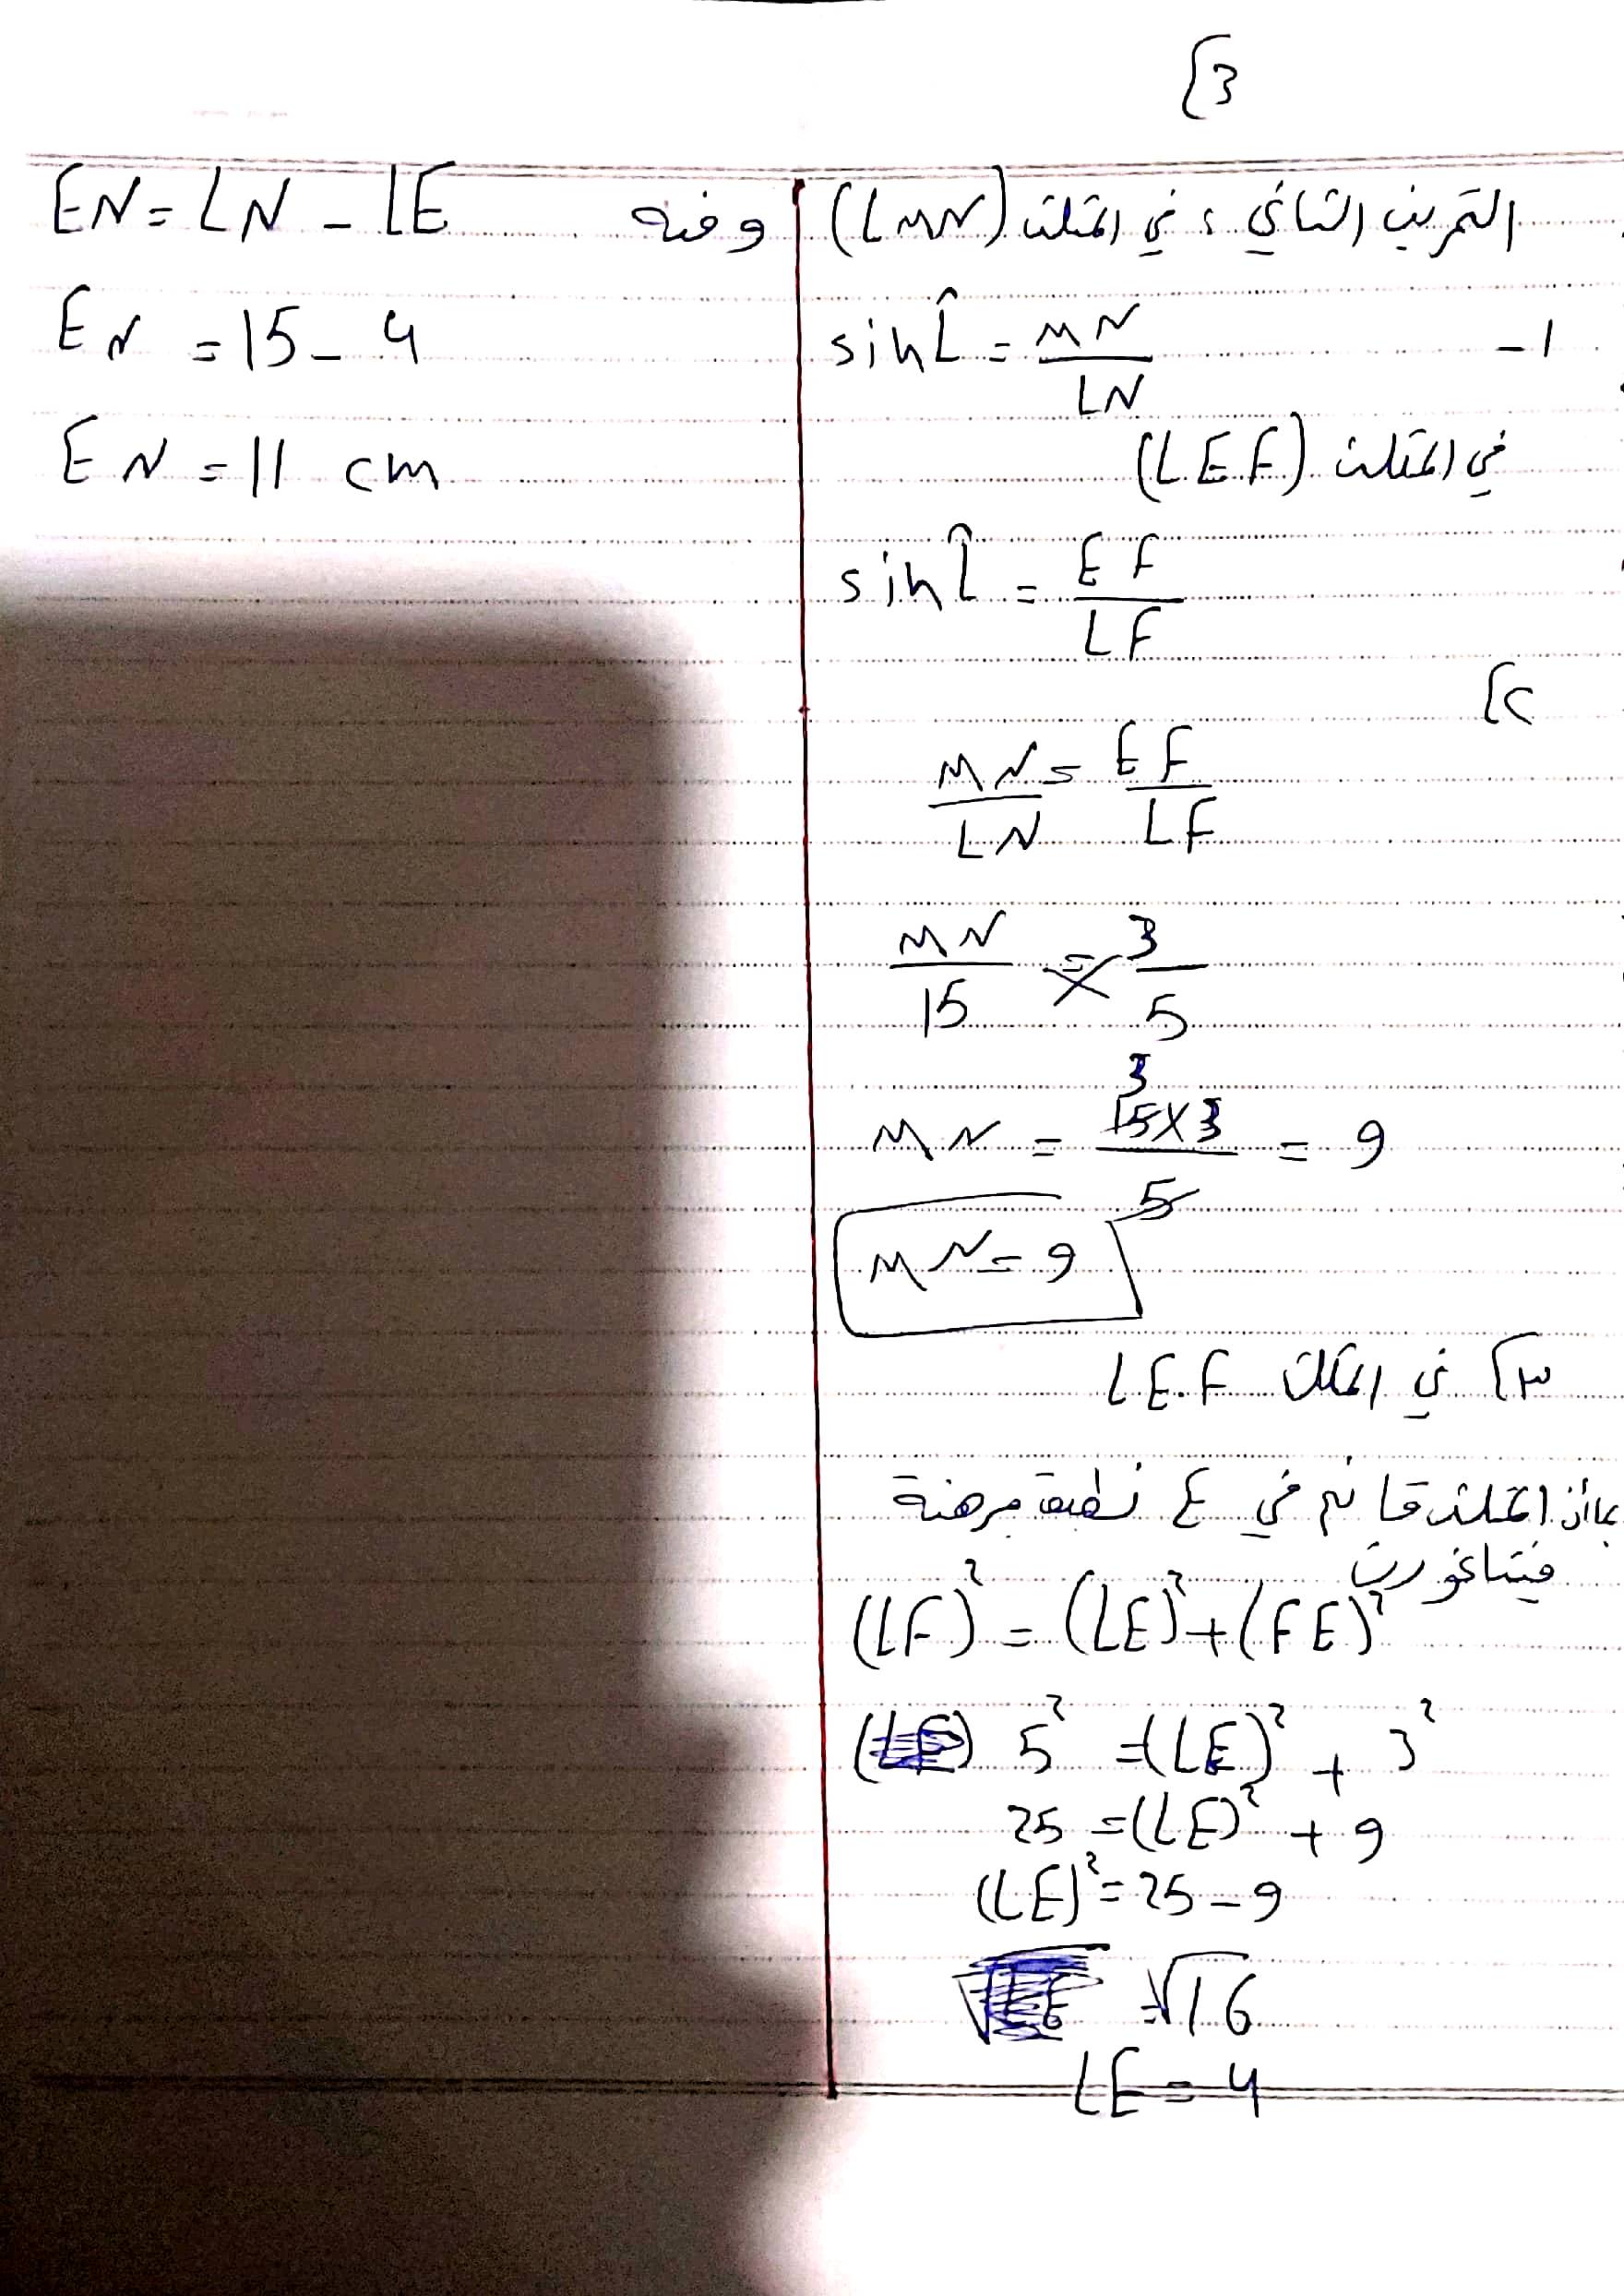 3]
التمرين الثاني : في المثلث (LMN)
1- sin L̂ = MN/LN
في المثلث (LEF)
sin L̂ = EF/LF
2]
MN/LN = EF/LF
MN/15 = 3/5
MN = 15×3/5 = 9
3
MN = 9
3] في المثلث LEF
بما أن المثلث قائم في E نطبق مبرهنة
فيتاغورث
(LF)² = (LE)² + (FE)²
5² = (LE)² + 3²
25 = (LE)² + 9
(LE)² = 25 - 9
= √16
LE = 4
ومنه EN = LN - LE
EN = 15 - 4
EN = 11 cm